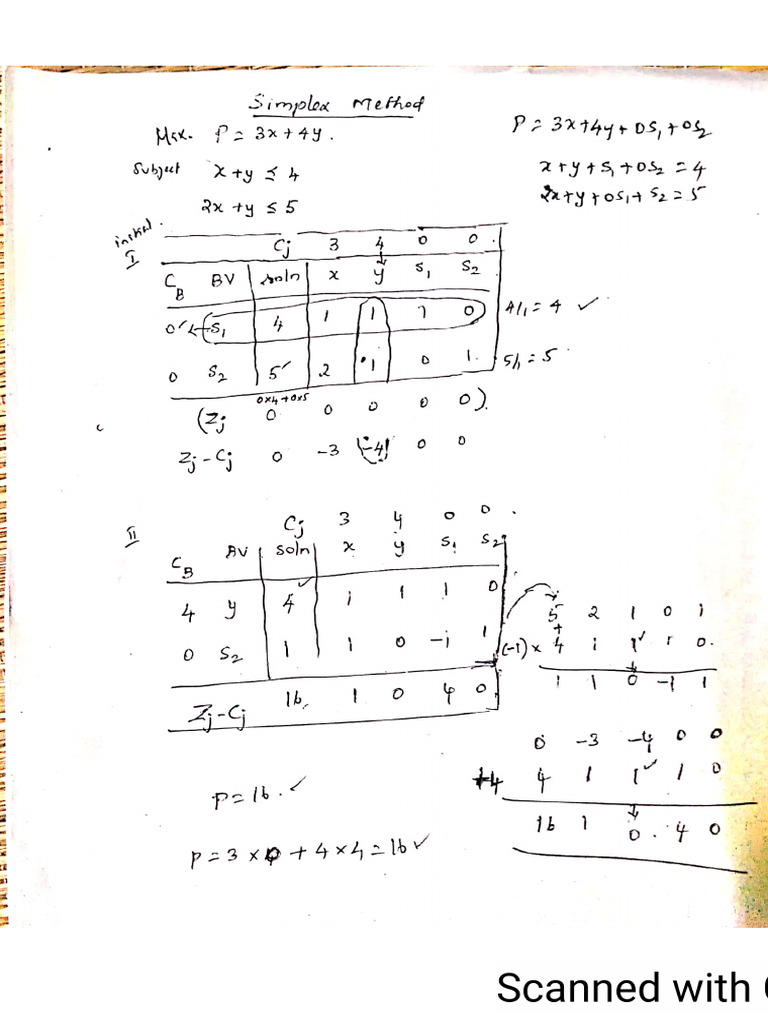 Simplex Method
Max. P = 3x + 4y.
Subject x + y ≤ 4
2x + y ≤ 5
P = 3x + 4y + 0s₁ + 0s₂
x + y + s₁ + 0s₂ = 4
2x + y + 0s₁ + s₂ = 5
initial
I
Cj 3 4 0 0
C_B BV soln x y s₁ s₂
0 ← s₁ 4 1 1 1 0 4/1 = 4 ✓
0 s₂ 5 2 1 0 1 5/1 = 5
0×4+0×5
(Zj 0 0 0 0 0).
Zj - Cj 0 -3 (-4) 0 0
II
Cj 3 4 0 0
C_B BV soln x y s₁ s₂
4 y 4 1 1 1 0
0 s₂ 1 1 0 -1 1
Zj - Cj 16 1 0 4 0
5 2 1 0 1
+
(-1) × 4 1 1 1 0
1 1 0 -1 1
0 -3 -4 0 0
+4 4 1 1 1 0
16 1 0 4 0
P = 16. ✓
P = 3 × 0 + 4 × 4 = 16 ✓
Scanned with